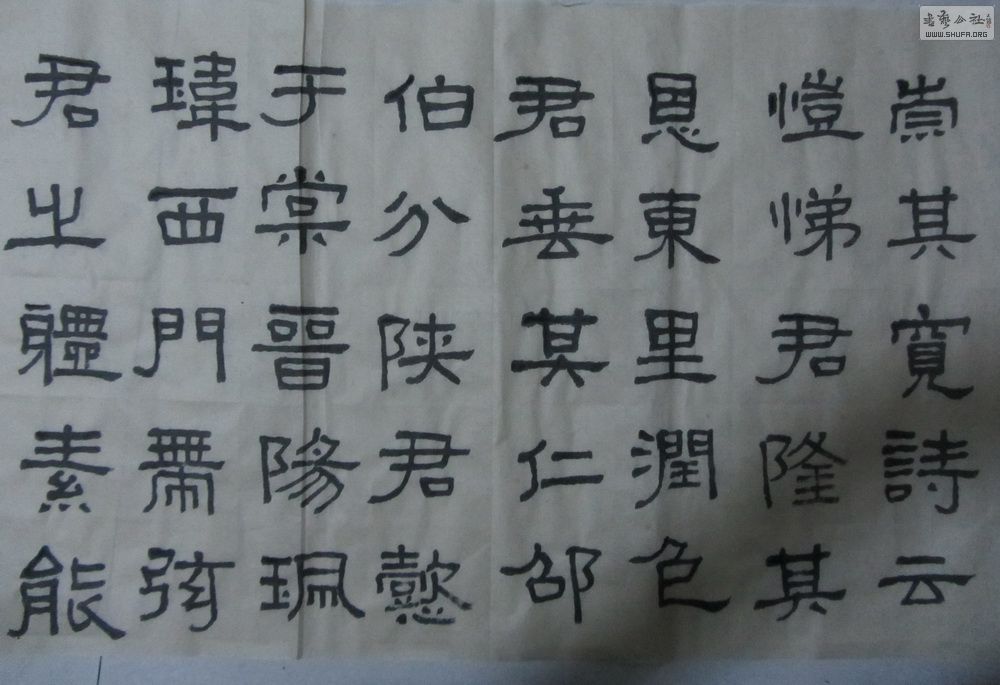 崇其寬詩云
愷悌君隆其
恩東里潤色
君垂其仁邵
伯分陕君懿
于棠晉陽珮
瑋西門帶弦
君之體素能
书艺公社
WWW.SHUFA.ORG